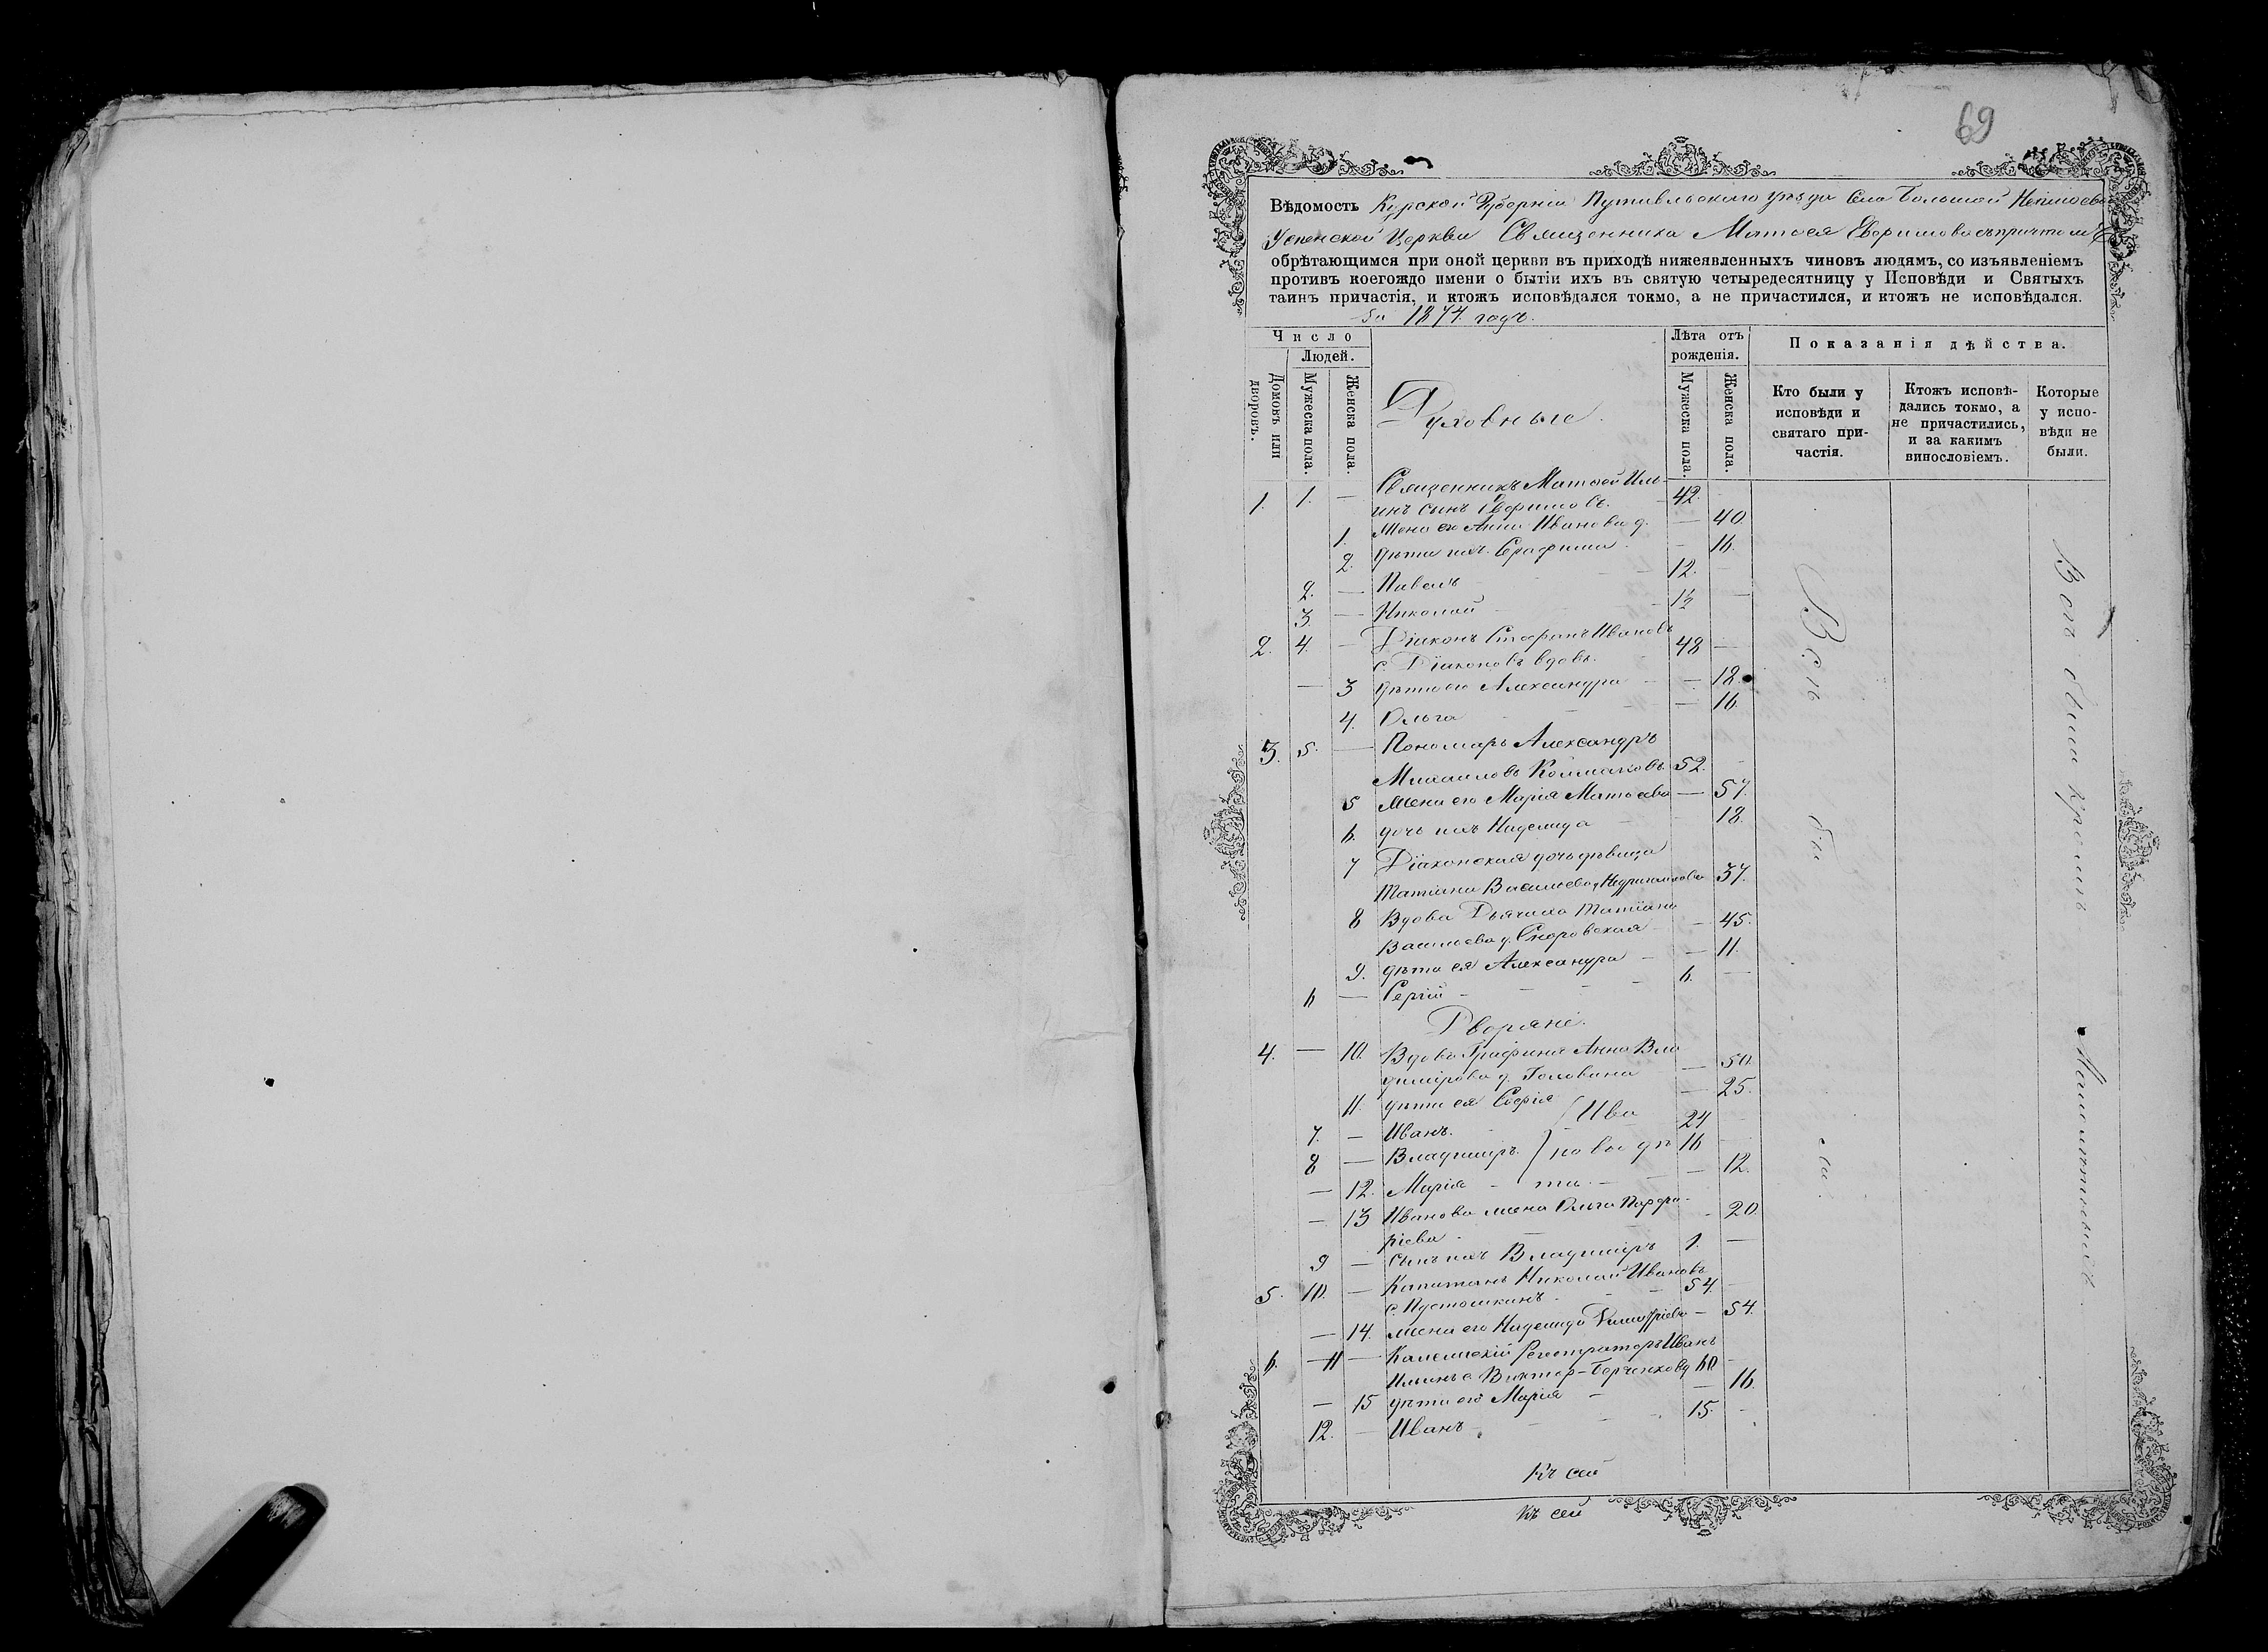 69
Вѣдомость Курской Губерніи Путивльскаго уѣзда Села Большой
Успенской Церкви Священника Матѳея съ причтомъ
обрѣтающимся при оной церкви въ приходѣ нижеявленныхъ чиновъ людямъ, со изъявленіемъ
противъ коегождо имени о бытіи ихъ въ святую четыредесятницу у Исповѣди и Святыхъ
таинъ причастія, и ктожъ исповѣдался токмо, а не причастился, и ктожъ не исповѣдался.
за 1874 годъ.
Число
Людей.
Домовъ или дворовъ.
Мужеска пола.
Женска пола.
Лѣта отъ рожденія.
Мужеска пола.
Женска пола.
Показанія дѣйства.
Кто были у исповѣди и святаго причастія.
Ктожъ исповѣдались токмо, а не причастились, и за какимъ винословіемъ.
Которые у исповѣди не были.
Духовные.
1. 1. — Священникъ Матѳей Иль-
инъ сынъ 42.
1. Жена его Анна Иванова д. — 40.
2. дѣти ихъ Серафима — 16.
2. — Павелъ 12. —
3. — Николай —
2. 4. — Діаконъ Стефанъ Ивановъ
с Діаконовъ вдовъ. 48 —
— 3 дѣти его Александра — 18.
4. Ольга — 16.
3. 5. — Пономарь Александръ
Михаиловъ 52. —
5 жена его Марія Матѳева — 57.
6. дочь ихъ Надежда 18.
7 Діаконская дочь дѣвица
Татіана Васильева 37.
8 Вдова Дьячиха Татіана
Васильева д. — 45.
9. дѣти ея Александра — 11.
6 — Сергій 6. —
Дворяне.
4. — 10. Вдова Графиня Анна Вла
димірова д. Головина — 50.
11. дѣти ея Софія — 25.
7. — Иванъ. } Ива 24 —
8 — Владиміръ } но вы дѣ 16
— 12. Марія — ти. — 12.
— 13 Иванова жена Ольга Порфи-
ріева 20.
9 — сынъ ихъ Владиміръ 1. —
5. 10. — Капитанъ Николай Ивановъ
с Пустошкинъ 54. —
— 14. жена его Надежда — 54.
6. — 11 — Калежскій Регистраторъ Иванъ
Ильинъ с Виктор- 60 —
— 15 дѣти его Марія — 16.
12. — Иванъ 15. —
Къ сей
Къ сей
Всѣ бы ли.
Всѣ были кромѣ Малолѣтныхъ.